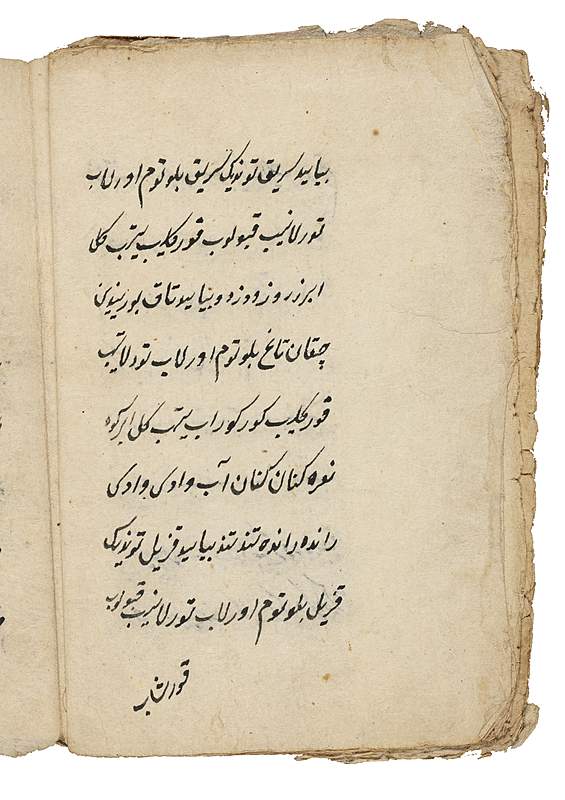 بیاید سریق توندیک سریق بلوتوم اورلاب
تورلانیب قبولوب قورکلیب یتب کلی
ابرز روز دوزد و بیاید تاق بورینوی
چقان تاغ بلوتوم اورلاب تورلانیب
قورکلیب کورکوراب یتب کلی ابرکوه
نعره کنان کنان آب وادی وادی
رانده رانده تند تند بیاید قزیل توندیک
قزیل بلوتوم اورلاب تورلانیب قبولوب